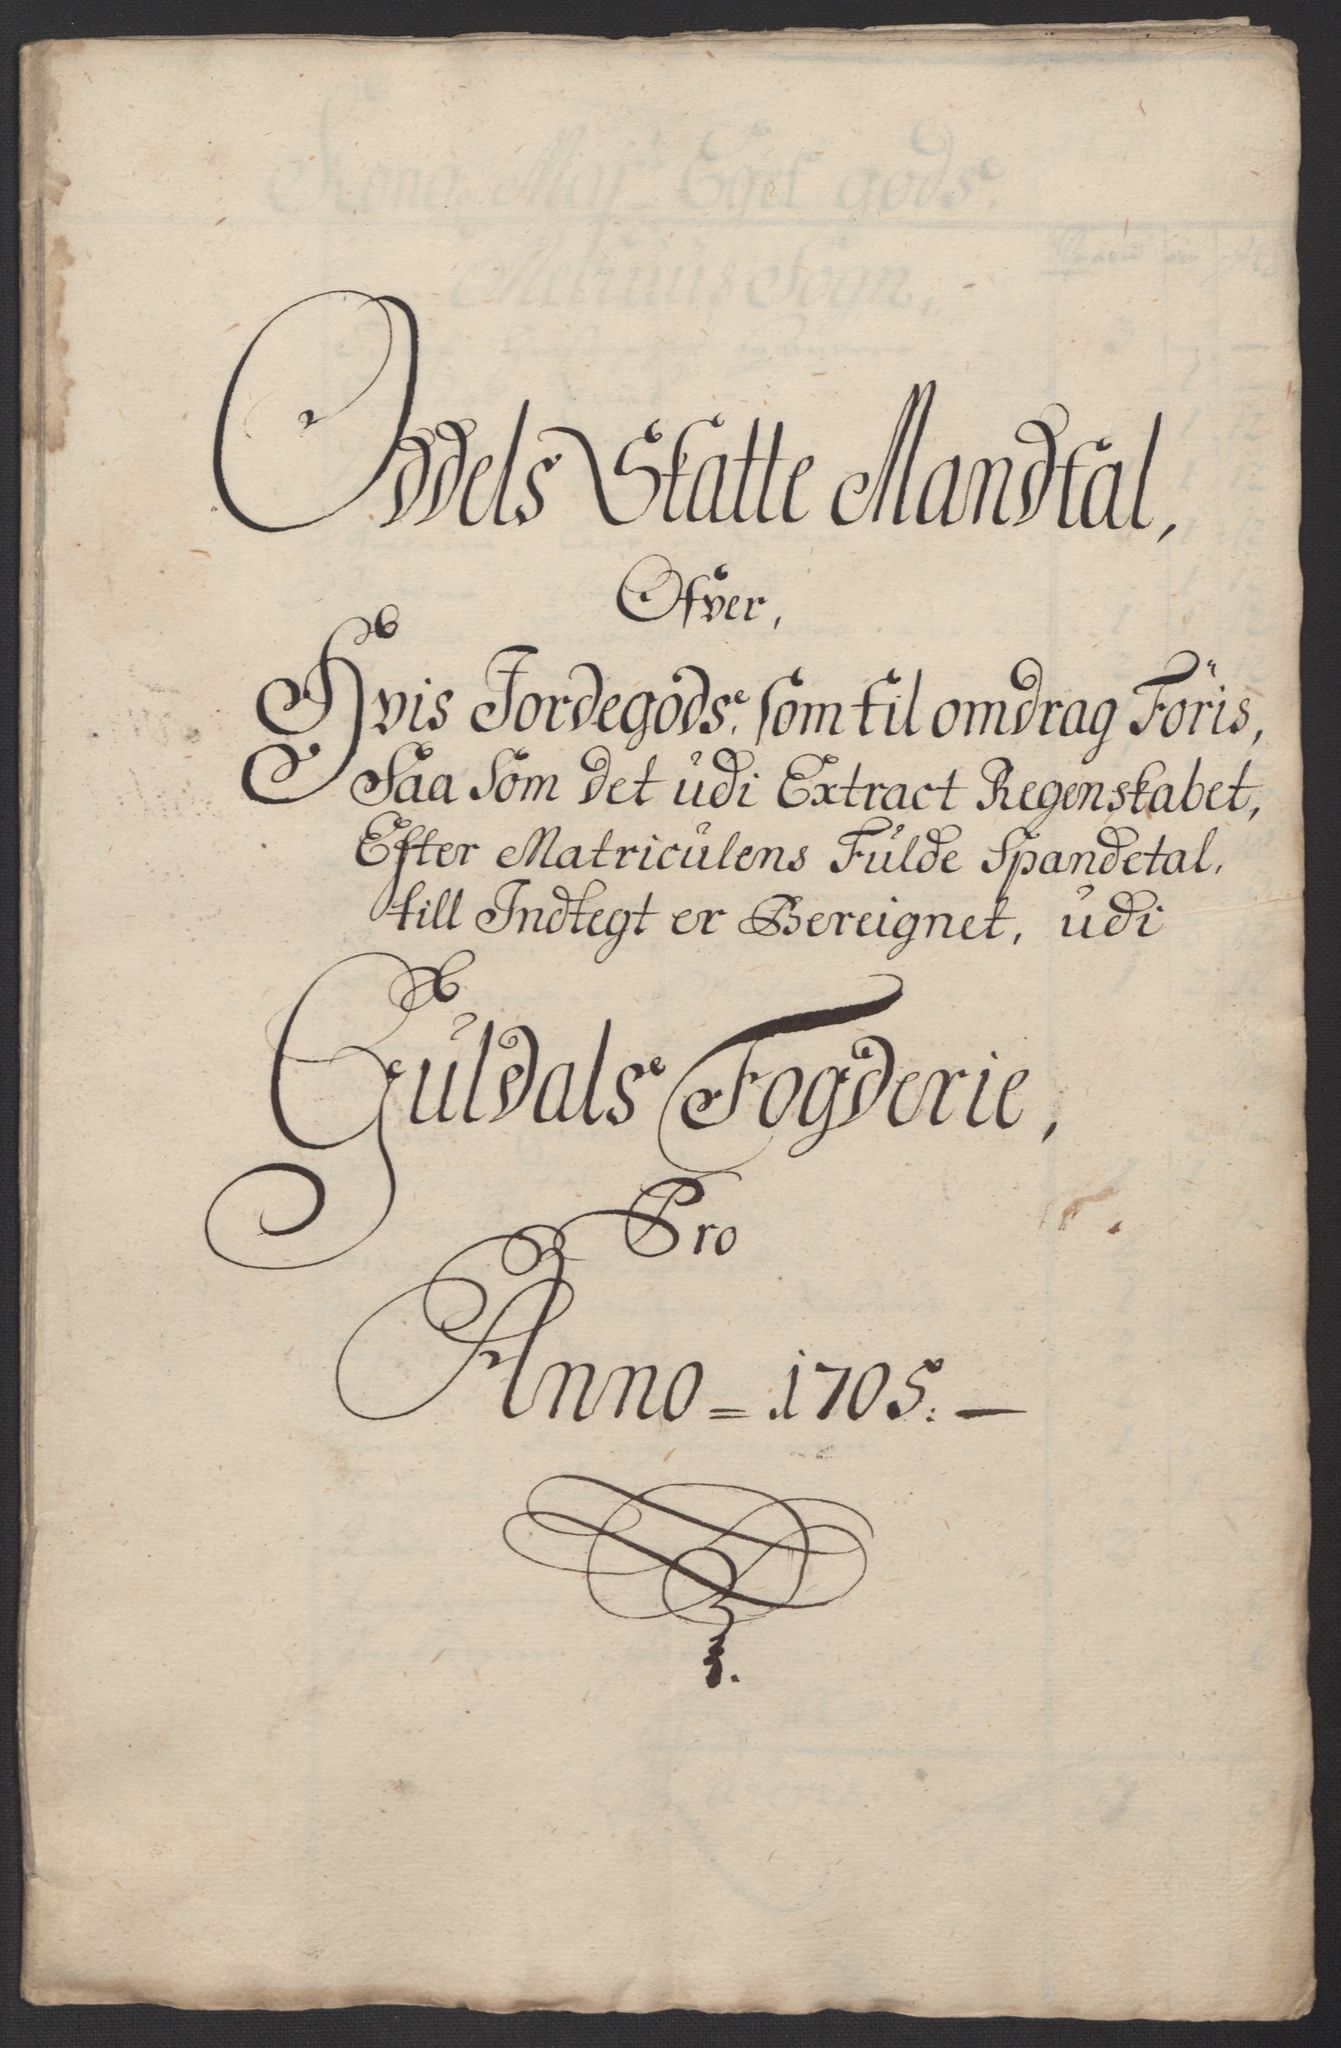 Oddels Skatte Mandtal,
Ofver,
Hvis Jordegods. som til omdrag Föris,
Saa Som det udi Extract Regenskabet,
Efter Matriculens Fulde Spandetal.
till Indtegt er Bereignet, udi
Guldals Fogderie,
Pro
Anno = 1705. —